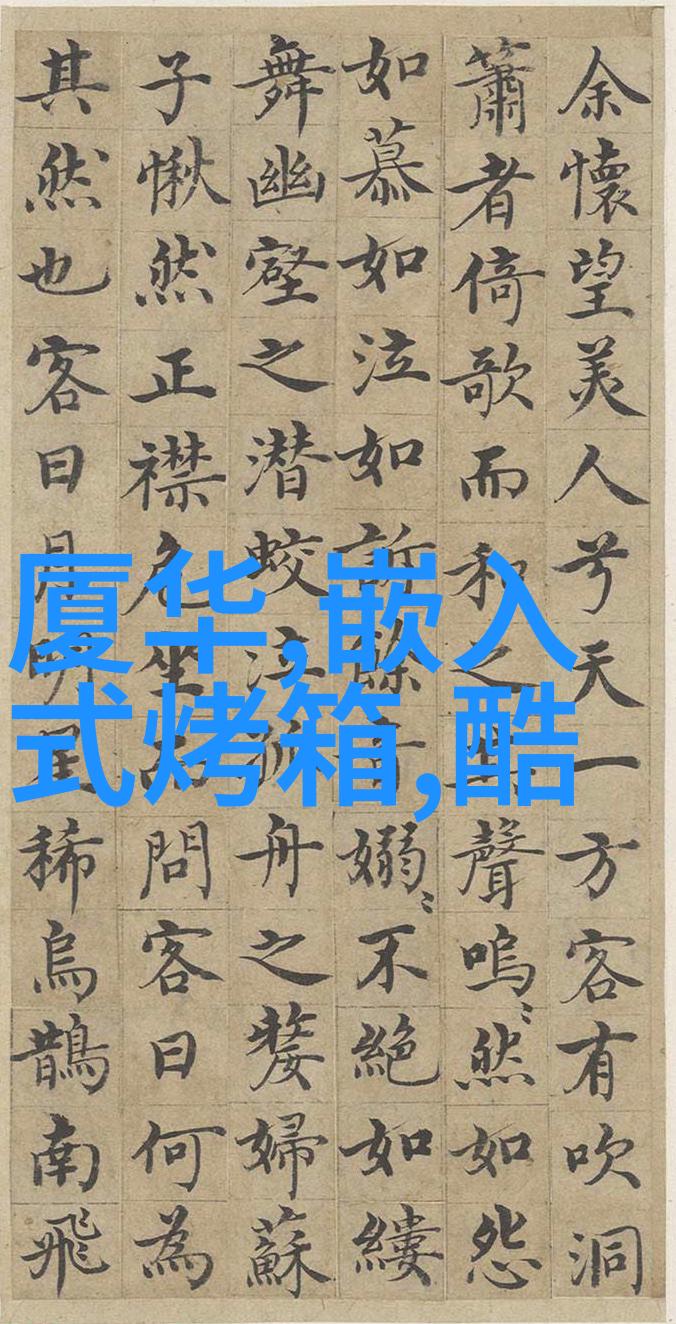 余懷望美人兮天一方客有吹洞
簫者倚歌而和之其聲嗚〻然如怨
如慕如泣如訴餘音嫋〻不絕如縷
舞幽壑之潜蛟泣孤舟之嫠婦蘇
子愀然正襟危坐而問客曰何為
其然也客曰月明星稀烏鵲南飛
厦华,嵌入
式烤箱,酷